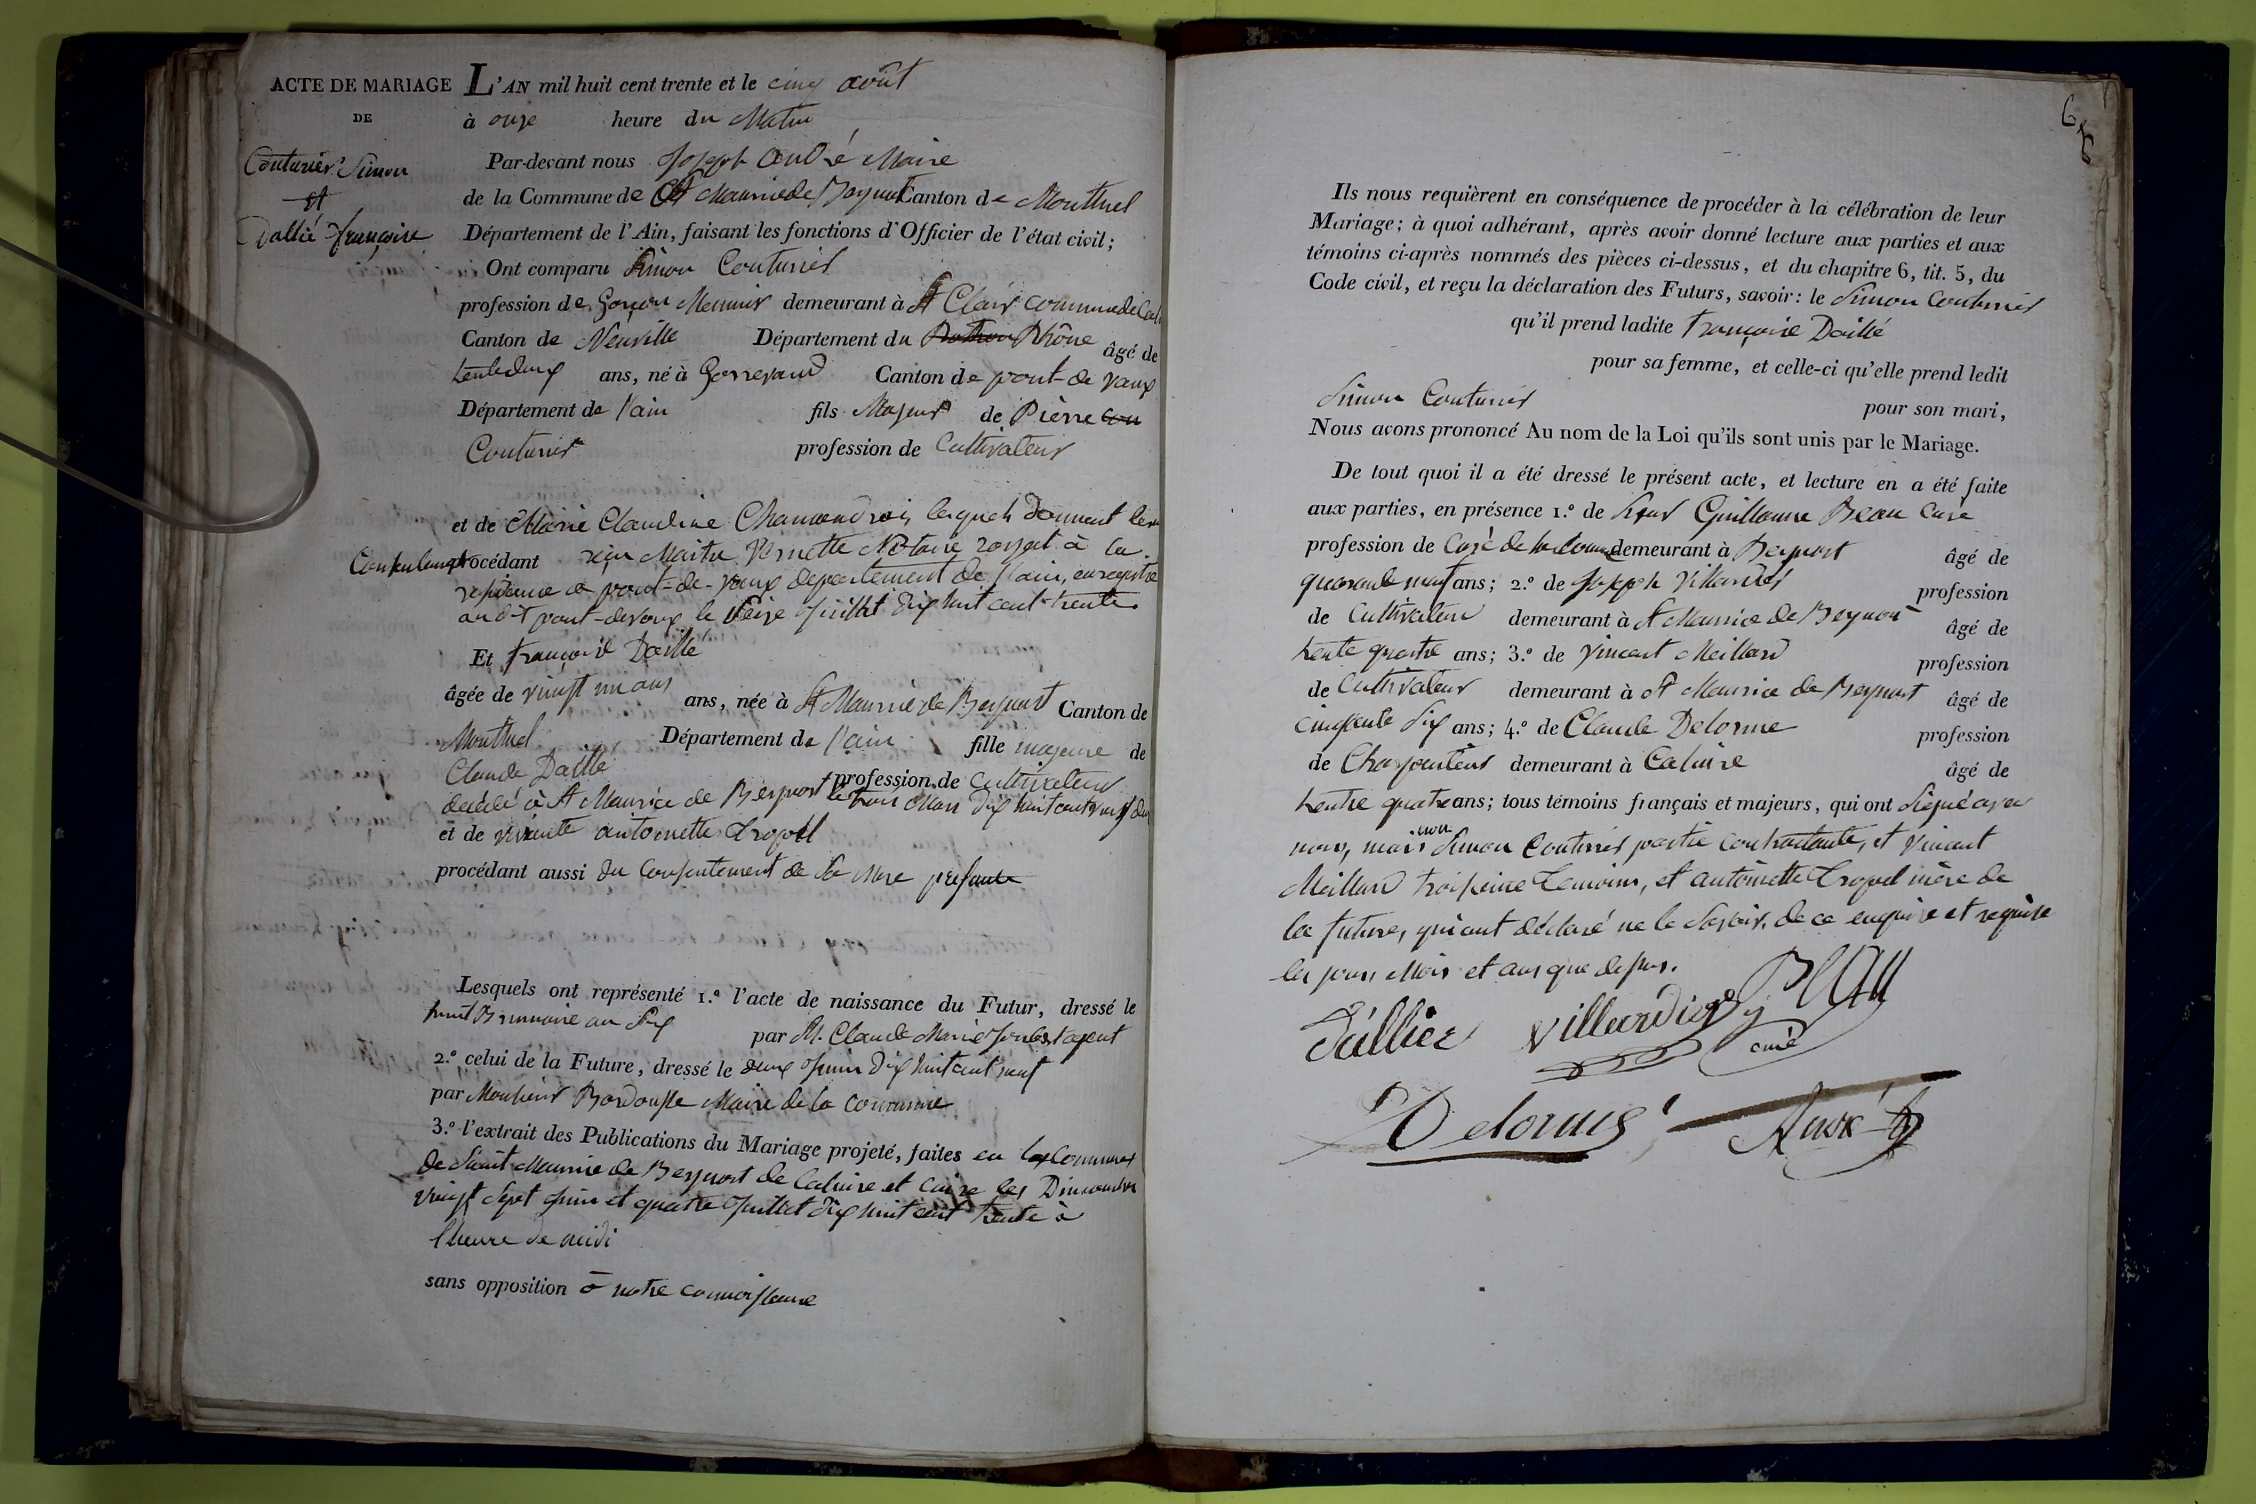 ACTE DE MARIAGE
DE
Couturier Simon
et
Dallié françoise
L'AN mil huit cent trente et le cinq août
à onze heure du Matin
Par-devant nous Joseph André Maire
de la Commune de St Maurice de Beynost Canton de Montluel
Département de l'Ain, faisant les fonctions d'Officier de l'état civil;
Ont comparu Simon Couturier
profession de Garçon Meunier demeurant à St Clair commune de
Canton de Neuville Département du Rhône âgé de
trente deux ans, né à Gorrevaud Canton de pont-de vaux
Département de l'ain fils Majeur de Pierre cou
Couturier profession de Cultivateur
et de Marie Claudine lesquels donnent leur
Consentement
procédant reçu Maitre Notaire royal à la
résidence de pont-de-vaux departement de l'ain, enregistré
audit pont-devaux le treize Juillet dix huit cent trente
Et françoise Daillé
âgée de vingt un ans ans, née à St Maurice de Beynost Canton de
Montluel Département de l'ain fille majeure de
Claude Daillé profession de Cultivateur
décédé à St Maurice de Beynost le trois Mars dix huit cent vingt deux
et de vivante antoinette Tropel
procédant aussi du Consentement de Sa Mère présente
Lesquels ont représenté 1.º l'acte de naissance du Futur, dressé le
huit Brumaire an Six par M. Claude Marie agent
2.º celui de la Future, dressé le deux Juin dix huit cent neuf
par Monsieur Maire de la Commune
3.º l'extrait des Publications du Mariage projeté, faites en les Communes
de Saint Maurice de Beynost de Caluire et Cuire les Dimanches
vingt Sept Juin et quatre Juillet dix huit cent trente à
l'heure de midi
sans opposition à notre connoissance
Ils nous requièrent en conséquence de procéder à la célébration de leur
Mariage; à quoi adhérant, après avoir donné lecture aux parties et aux
témoins ci-après nommés des pièces ci-dessus, et du chapitre 6, tit. 5, du
Code civil, et reçu la déclaration des Futurs, savoir: le Simon Couturier
qu'il prend ladite françoise Daillé
pour sa femme, et celle-ci qu'elle prend ledit
Simon Couturier pour son mari,
Nous avons prononcé Au nom de la Loi qu'ils sont unis par le Mariage.
De tout quoi il a été dressé le présent acte, et lecture en a été faite
aux parties, en présence 1.º de Sieur Guillaume Beau Curé
profession de Curé de demeurant à Beynost âgé de
quarante neuf ans; 2.º de Joseph Villardier profession
de Cultivateur demeurant à St Maurice de Beynost âgé de
trente quatre ans; 3.º de vincent Meillard profession
de Cultivateur demeurant à St Maurice de Beynost âgé de
cinquante Six ans; 4.º de Claude Delorme profession
de Charpentier demeurant à Caluire âgé de
trente quatre ans; tous témoins français et majeurs, qui ont Signé avec
nous, mais non Simon Couturier partie contractante, et Vincent
Meillard troisieme Temoins, et antoinette Tropel mère de
la future, qui ont déclaré ne le Savoir, de ce enquise et requise
les jours Mois et ans que dessus.
Dallier Villardier Beau
curé
Delorme André